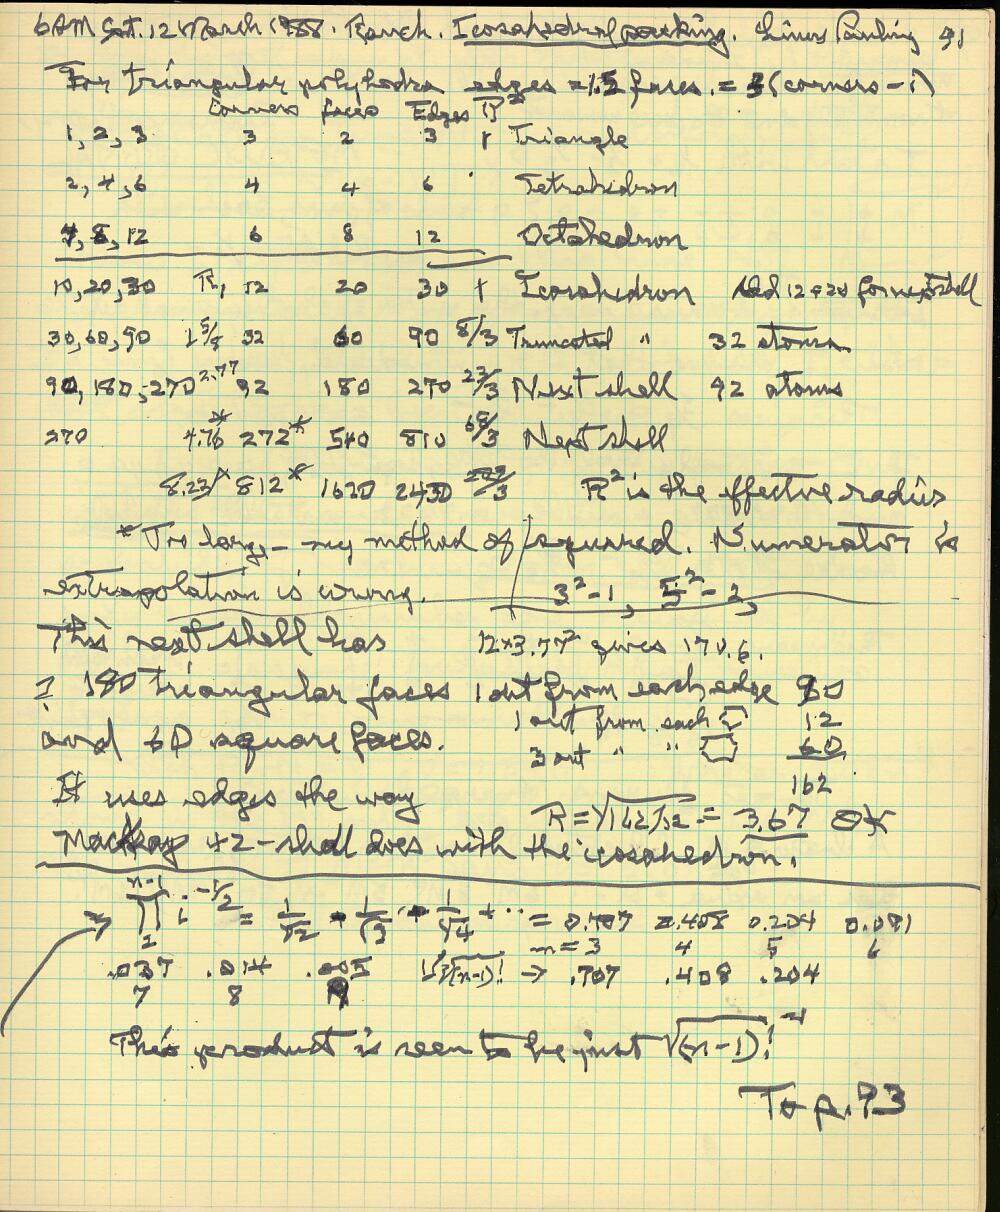 6 AM Sat. 12 March 1988. Ranch. Icosahedral packing. Linus Pauling 91
For triangular polyhedra edges = 1.5 faces. = 3(corners - )
Corners faces Edges R²
1, 2, 3 3 2 3 1 Triangle
2, 4, 6 4 4 6 . Tetrahedron
4, 8, 12 6 8 12 Octahedron
10, 20, 30 R, 12 20 30 1 Icosahedron Add 12 + 20 for next shell
30, 60, 90 1 5/8 32 60 90 8/3 Truncated " 32 atoms
90, 180, 270 2.77 92 180 270 23/3 Next shell 92 atoms
270 4.76* 272* 540 810 68/3 Next shell
8.23* 812* 1620 2430 /3 R² is the effective radius
* Too large - my method of squared. Numerator is
extrapolation is wrong. 3²-1, 5²-2,
This next shell has 12×3.77² gives 170.6.
? 180 triangular faces 1 out from each edge 90
1 out from each ⬠ 12
and 60 square faces. 3 out " " ⬡ 60
162
It uses edges the way R = √162/12 = 3.67 OK
Mackay 42-shell does with the icosahedron.
n-1
∏ i^-1/2 = 1/√2 · 1/√3 · 1/√4 + ·· = 0.707 0.408 0.204 0.091
1 n = 3 4 5 6
.037 .014 .005 1/√(n-1)! → .707 .408 .204
7 8 9
This product is seen to be just √(n-1)!⁻¹
To p. 93